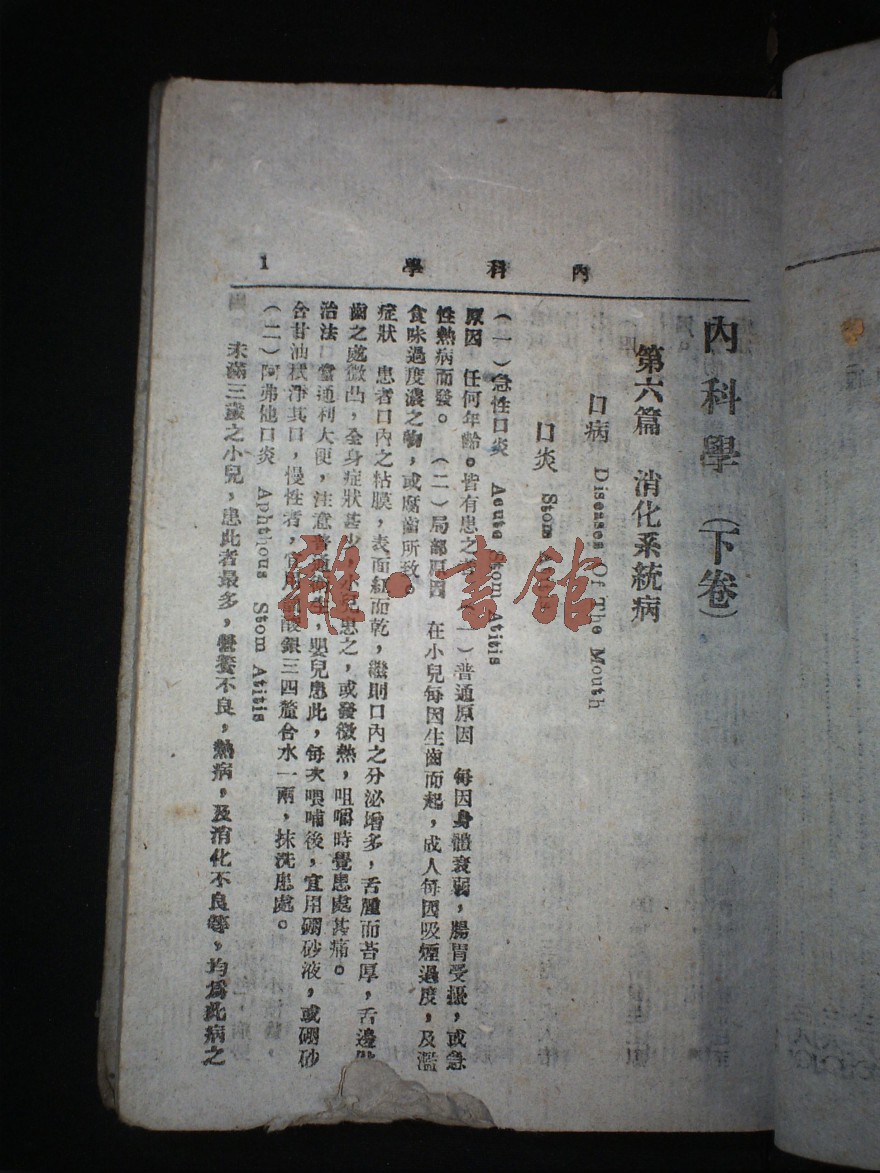 內科學
1
內科學（下卷）
第六篇 消化系統病
口病 Diseases Of The Mouth
口炎 Stom
（一）急性口炎 Acute Stom Atitis
原因 任何年齡。皆有患之 （一）普通原因 每因身體衰弱，腸胃受擾，或急
性熱病而發。（二）局部原因 在小兒每因生齒而起，成人每因吸煙過度，及濫
食味過度濃之物，或腐齒所致。
症狀 患者口內之粘膜，表面紅而乾，繼則口內之分泌增多，舌腫而苔厚，舌邊
齒之處微凸，全身症狀甚少，小兒患之，或發微熱，咀嚼時覺患處甚痛。
治法 當通利大便，注意普通 嬰兒患此，每次喂哺後，宜用硼砂液，或硼砂
合甘油拭淨其口，慢性者，宜用 酸銀三四釐合水一兩，抹洗患處。
（二）阿弗他口炎 Aphthous Stom Atitis
未滿三歲之小兒，患此者最多，營養不良，熱病，及消化不良等，均爲此病之
雜·書館